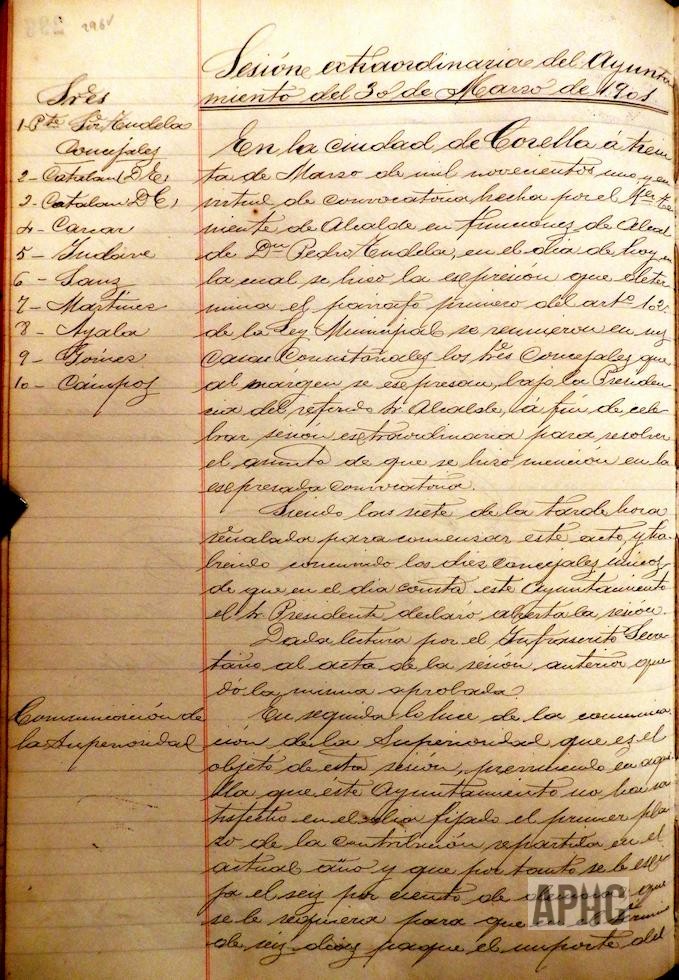 296v
Sesión extraordinaria del Ayunta
miento del 30 de Marzo de 1901
Sres
1 Pte Sr Eudela
Concejales
2 - Catalan (D E)
3 - Catalan D C)
4 - Carcar
5 -
6 - Sanz
7 - Martinez
8 - Ayala
9 - Gómez
10 - Cámpos
En la ciudad de Corella á trein
ta de Marzo de mil novecientos uno y en
virtud de convocatoria hecha por el
niente de Alcalde en funciones de Alcal
de Dn Pedro Eudela, en el dia de hoy en
la cual se hiso la espresion que deter
mina el parrafo primero del artº 102
de la Ley Municipal se reunieron en sus
Casas Consistoriales los Sres Concejales que
al márgen se espresan, bajo la Presiden
cia del referido Sr Alcalde, á fin de cele
brar sesión extraordinaria para resolver
el asunto de que se hiso mención en la
espresada convocatoria.
Siendo las siete de la tarde hora
señalada para comensar este acto, y ha
biendo concurrido los diez concejales únicos
de que en el dia consta este Ayuntamiento
el Sr Presidente declaró abierta la sesión.
Dada lectura por el Infrascrito Secre
tario al acta de la sesión anterior que
dó la misma aprobada.
Comunicación de
la Superioridad
En seguida lo hice de la comunica
ción de la Superioridad que es el
objeto de esta sesión, previniendo en aque
lla que este Ayuntamiento no ha sa
tisfecho en el dia fijado el primer pla
zo de la contribución repartida en el
actual año y que por tanto se le esi
ja el seis por ciento de que
se le requiera para que en el término
de seis dias pague el importe del
APHC